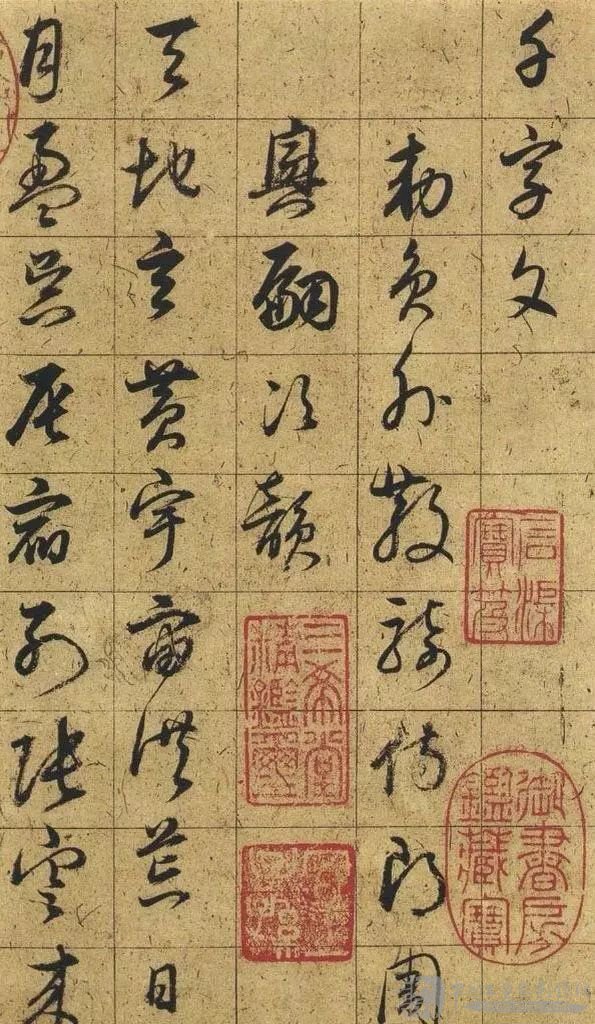 千字文
勑員外散騎侍郎周
興嗣次韻
天地玄黄宇宙洪荒日
月盈昃辰宿列張寒來
石渠寶笈
御書房鑑藏寶
三希堂精鑑璽
宜子孫